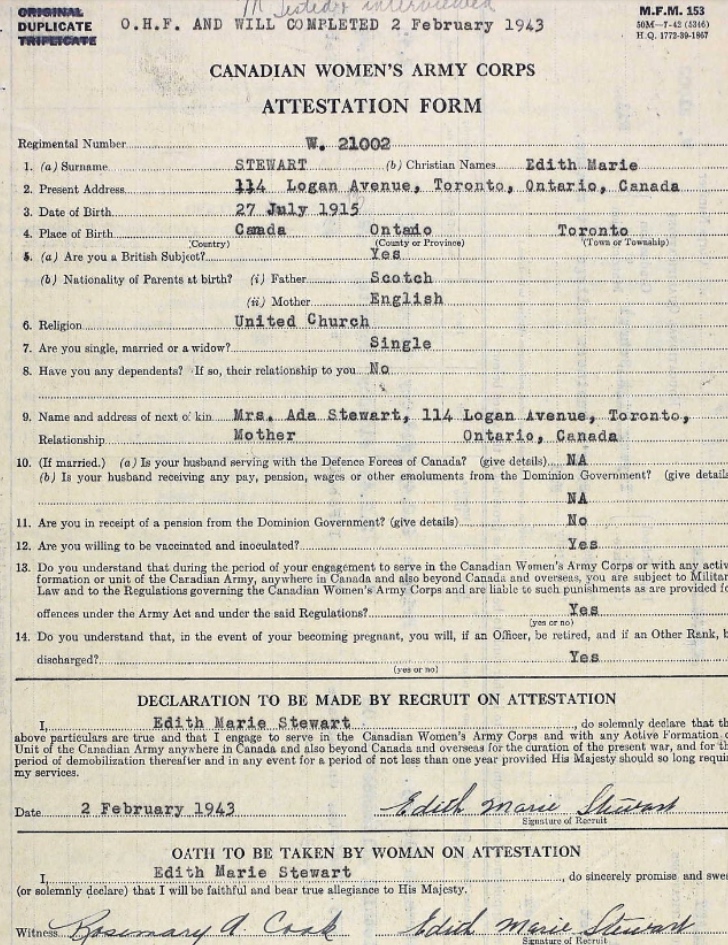 ORIGINAL
DUPLICATE
TRIPLICATE
interviewed
O.H.F. AND WILL COMPLETED 2 February 1943
M.F.M. 153
50M—7-42 (5346)
H.Q. 1772-39-1867
CANADIAN WOMEN'S ARMY CORPS
ATTESTATION FORM
Regimental Number W. 21002
1. (a) Surname STEWART (b) Christian Names Edith Marie
2. Present Address 114 Logan Avenue, Toronto, Ontario, Canada
3. Date of Birth 27 July 1915
4. Place of Birth Canada Ontario Toronto
(Country) (County or Province) (Town or Township)
5. (a) Are you a British Subject? Yes
(b) Nationality of Parents at birth? (i) Father Scotch
(ii) Mother English
6. Religion United Church
7. Are you single, married or a widow? Single
8. Have you any dependents? If so, their relationship to you No
9. Name and address of next of kin Mrs. Ada Stewart, 114 Logan Avenue, Toronto,
Relationship Mother Ontario, Canada
10. (If married.) (a) Is your husband serving with the Defence Forces of Canada? (give details) NA
(b) Is your husband receiving any pay, pension, wages or other emoluments from the Dominion Government? (give details
NA
11. Are you in receipt of a pension from the Dominion Government? (give details) No
12. Are you willing to be vaccinated and inoculated? Yes
13. Do you understand that during the period of your engagement to serve in the Canadian Women's Army Corps or with any activ
formation or unit of the Canadian Army, anywhere in Canada and also beyond Canada and overseas, you are subject to Militar
Law and to the Regulations governing the Canadian Women's Army Corps and are liable to such punishments as are provided fo
offences under the Army Act and under the said Regulations? Yes
(yes or no)
14. Do you understand that, in the event of your becoming pregnant, you will, if an Officer, be retired, and if an Other Rank, b
discharged? Yes
(yes or no)
DECLARATION TO BE MADE BY RECRUIT ON ATTESTATION
I, Edith Marie Stewart, do solemnly declare that th
above particulars are true and that I engage to serve in the Canadian Women's Army Corps and with any Active Formation o
Unit of the Canadian Army anywhere in Canada and also beyond Canada and overseas for the duration of the present war, and for th
period of demobilization thereafter and in any event for a period of not less than one year provided His Majesty should so long requir
my services.
Date 2 February 1943 Edith Marie Stewart
Signature of Recruit
OATH TO BE TAKEN BY WOMAN ON ATTESTATION
I, Edith Marie Stewart, do sincerely promise and swea
(or solemnly declare) that I will be faithful and bear true allegiance to His Majesty.
Witness Rosemary A. Cook Edith Marie Stewart
Signature of Recruit